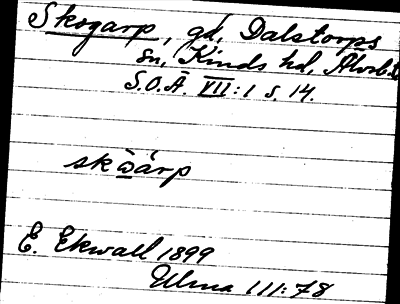 Skogarp, gd, Dalstorps
sn, Kinds hd, Älvsb. l
S.O.Ä. VII:1 s. 14.
skὼárp
E. Ekwall 1899
Ulma 111:78